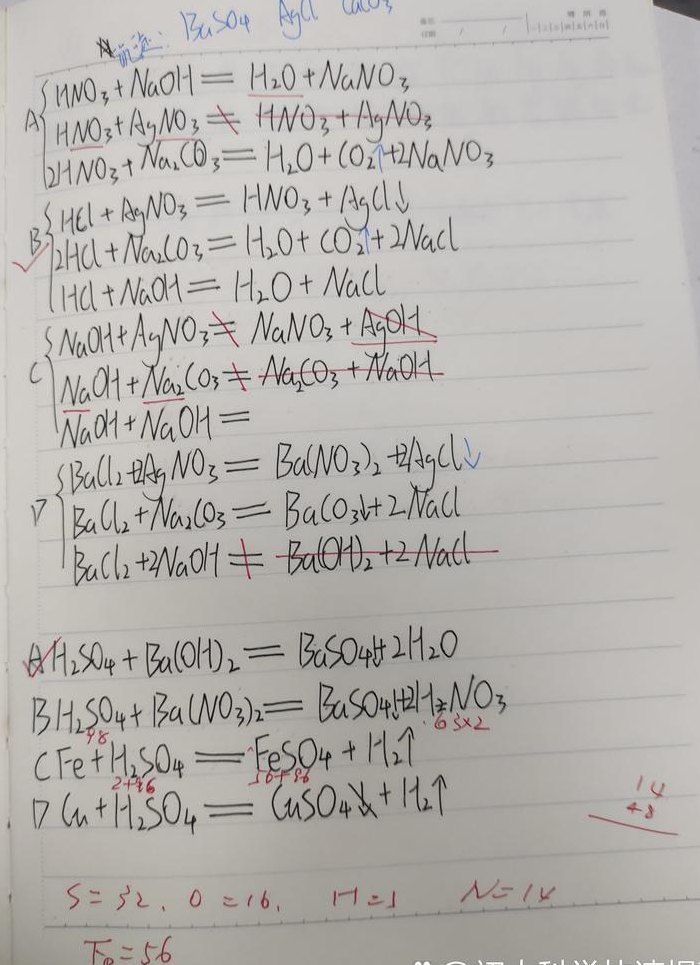 BaSO₄ AgCl CaCO₃
A HNO₃ + NaOH = H₂O + NaNO₃
HNO₃ + AgNO₃ ≠ HNO₃ + AgNO₃
2HNO₃ + Na₂CO₃ = H₂O + CO₂↑ + 2NaNO₃
B HCl + AgNO₃ = HNO₃ + AgCl↓
2HCl + Na₂CO₃ = H₂O + CO₂↑ + 2NaCl
HCl + NaOH = H₂O + NaCl
C NaOH + AgNO₃ ≠ NaNO₃ + AgOH
NaOH + Na₂CO₃ ≠ Na₂CO₃ + NaOH
NaOH + NaOH =
D BaCl₂ + 2AgNO₃ = Ba(NO₃)₂ + 2AgCl↓
BaCl₂ + Na₂CO₃ = BaCO₃↓ + 2NaCl
BaCl₂ + 2NaOH ≠ Ba(OH)₂ + 2NaCl
A H₂SO₄ + Ba(OH)₂ = BaSO₄↓ + 2H₂O
B H₂SO₄ + Ba(NO₃)₂ = BaSO₄↓ + 2HNO₃
98 63×2
C Fe + H₂SO₄ = FeSO₄ + H₂↑
2+96 56+96
D Cu + H₂SO₄ = CuSO₄↓ + H₂↑
14
48
S=32. O=16. H=1 N=14
Fe=56